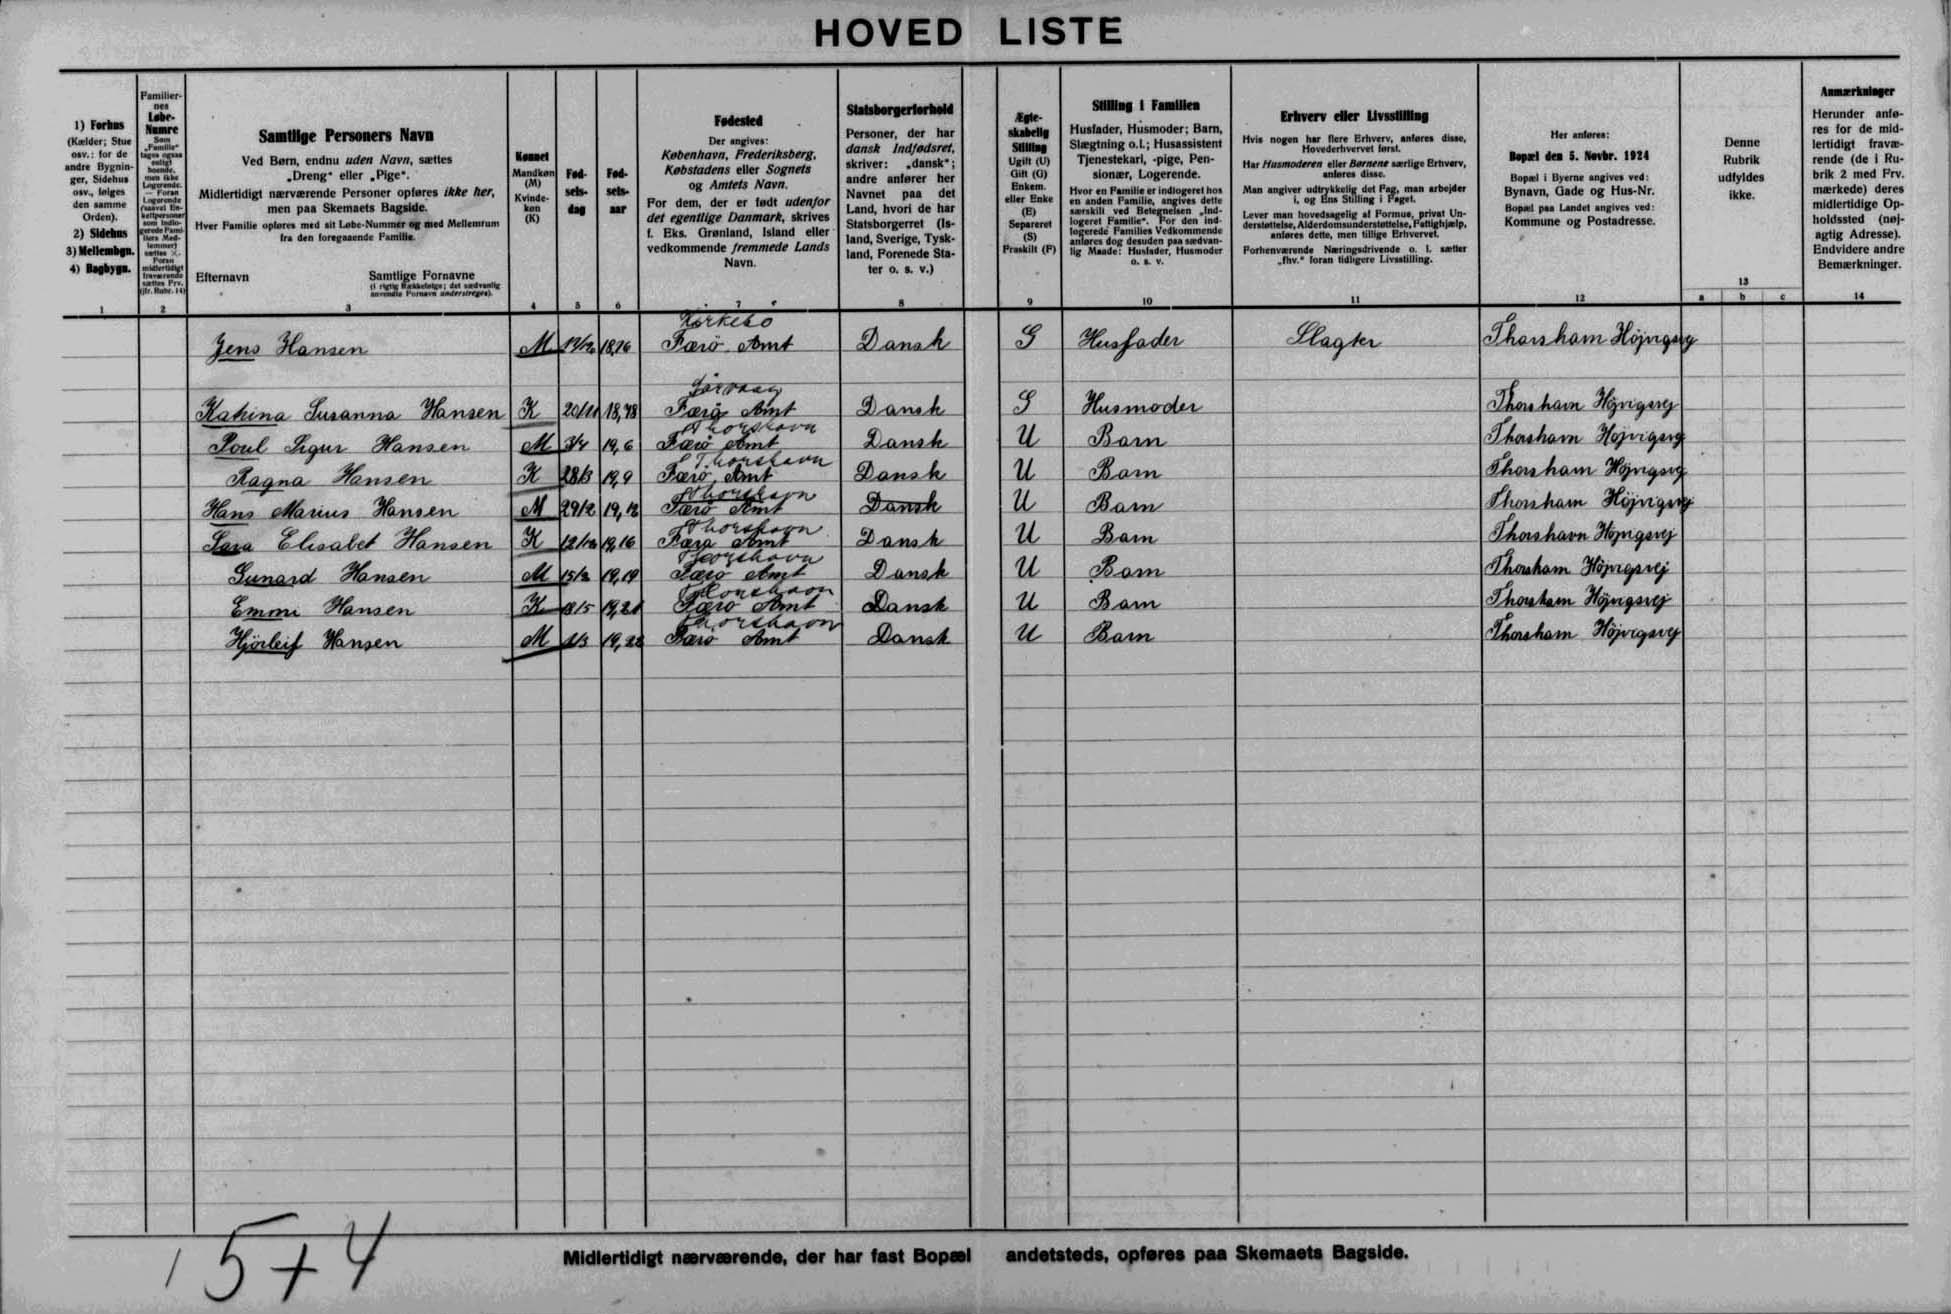 HOVED LISTE
1) Forhus
(Kælder; Stue
osv.: for de
andre Bygnin-
ger, Sidehus
osv., følges
den samme
Orden).
2) Sidehus
3) Mellembgn.
4) Bagbygn.
1
Familier-
nes
Løbe-
Numre
Som
„Familie“
tages ogsaa
enligt
boende,
men ikke
Logerende.
— Foran
Logerende
2
Samtlige Personers Navn
Ved Børn, endnu uden Navn, sættes
„Dreng“ eller „Pige“.
Midlertidigt nærværende Personer opføres ikke her,
men paa Skemaets Bagside.
Hver Familie opføres med sit Løbe-Nummer og med Mellemrum
fra den foregaaende Familie.
Efternavn
Samtlige Fornavne
(i rigtig Rækkefølge; det sædvanlig
anvendte Fornavn understreges).
3
Kønnet
Mandkøn
(M)
Kvinde-
køn
(K)
4
Fød-
sels-
dag
5
Fød-
sels-
aar
6
Fødested
Der angives:
København, Frederiksberg,
Købstadens eller Sognets
og Amtets Navn.
For dem, der er født udenfor
det egentlige Danmark, skrives
f. Eks. Grønland, Island eller
vedkommende fremmede Lands
Navn.
7
Statsborgerforhold
Personer, der har
dansk Indfødsret,
skriver: „dansk“;
andre anfører her
Navnet paa det
Land, hvori de har
Statsborgerret (Is-
land, Sverige, Tysk-
land, Forenede Sta-
ter o. s. v.)
8
Ægte-
skabelig
Stilling
Ugift (U)
Gift (G)
Enkem.
eller Enke
(E)
Separeret
(S)
Fraskilt (F)
9
Stilling i Familien
Husfader, Husmoder; Barn,
Slægtning o.l.; Husassistent
Tjenestekarl, -pige, Pen-
sionær, Logerende.
Hvor en Familie er indlogeret hos
en anden Familie, angives dette
særskilt ved Betegnelsen „Ind-
logeret Familie“. For den ind-
logerede Families Vedkommende
anføres dog desuden paa sædvan-
lig Maade: Husfader, Husmoder
o. s. v.
10
Erhverv eller Livsstilling
Hvis nogen har flere Erhverv, anføres disse,
Hovederhvervet først.
Har Husmoderen eller Børnene særlige Erhverv,
anføres disse.
Man angiver udtrykkelig det Fag, man arbejder
i, og Ens Stilling i Faget.
Lever man hovedsagelig af Formue, privat Un-
derstøttelse, Alderdomsunderstøttelse, Fattighjælp,
anføres dette, men tillige Erhvervet.
Forhenværende Næringsdrivende o. l. sætter
„fhv.“ foran tidligere Livsstilling.
11
Her anføres:
Bopæl den 5. Novbr. 1924
Bopæl i Byerne angives ved:
Bynavn, Gade og Hus-Nr.
Bopæl paa Landet angives ved:
Kommune og Postadresse.
12
Denne
Rubrik
udfyldes
ikke.
13
a b c
Anmærkninger
Herunder anfø-
res for de mid-
lertidigt fravæ-
rende (de i Ru-
brik 2 med Frv.
mærkede) deres
midlertidige Op-
holdssted (nøj-
agtig Adresse).
Endvidere andre
Bemærkninger.
14
Kirkebö
Jens Hansen M 18,76 Færö Amt Dansk G Husfader Slagter Thorshavn Höjvigsvej
Sörvaag
Katrina Susanna Hansen K 20/11 18,78 Færö Amt Dansk G Husmoder Thorshavn Höjvigsvej
Thorshavn
Poul Sigur Hansen M 3/7 19,6 Færö Amt Dansk U Barn Thorshavn Höjvigsvej
Thorshavn
Ragna Hansen K 28/3 19,9 Færö Amt Dansk U Barn Thorshavn Höjvigsvej
Thorshavn
Hans Marius Hansen M 29/2 19,12 Færö Amt Dansk U Barn Thorshavn Höjvigsvej
Thorshavn
Sara Elisabet Hansen K 19,16 Færö Amt Dansk U Barn Thorshavn Höjvigsvej
Thorshavn
Sunard Hansen M 15/2 19,19 Færö Amt Dansk U Barn Thorshavn Höjvigsvej
Thorshavn
Emmi Hansen K 19,21 Færö Amt Dansk U Barn Thorshavn Höjvigsvej
Thorshavn
Hjörleif Hansen M Færö Amt Dansk U Barn Thorshavn Höjvigsvej
5+4
Midlertidigt nærværende, der har fast Bopæl andetsteds, opføres paa Skemaets Bagside.